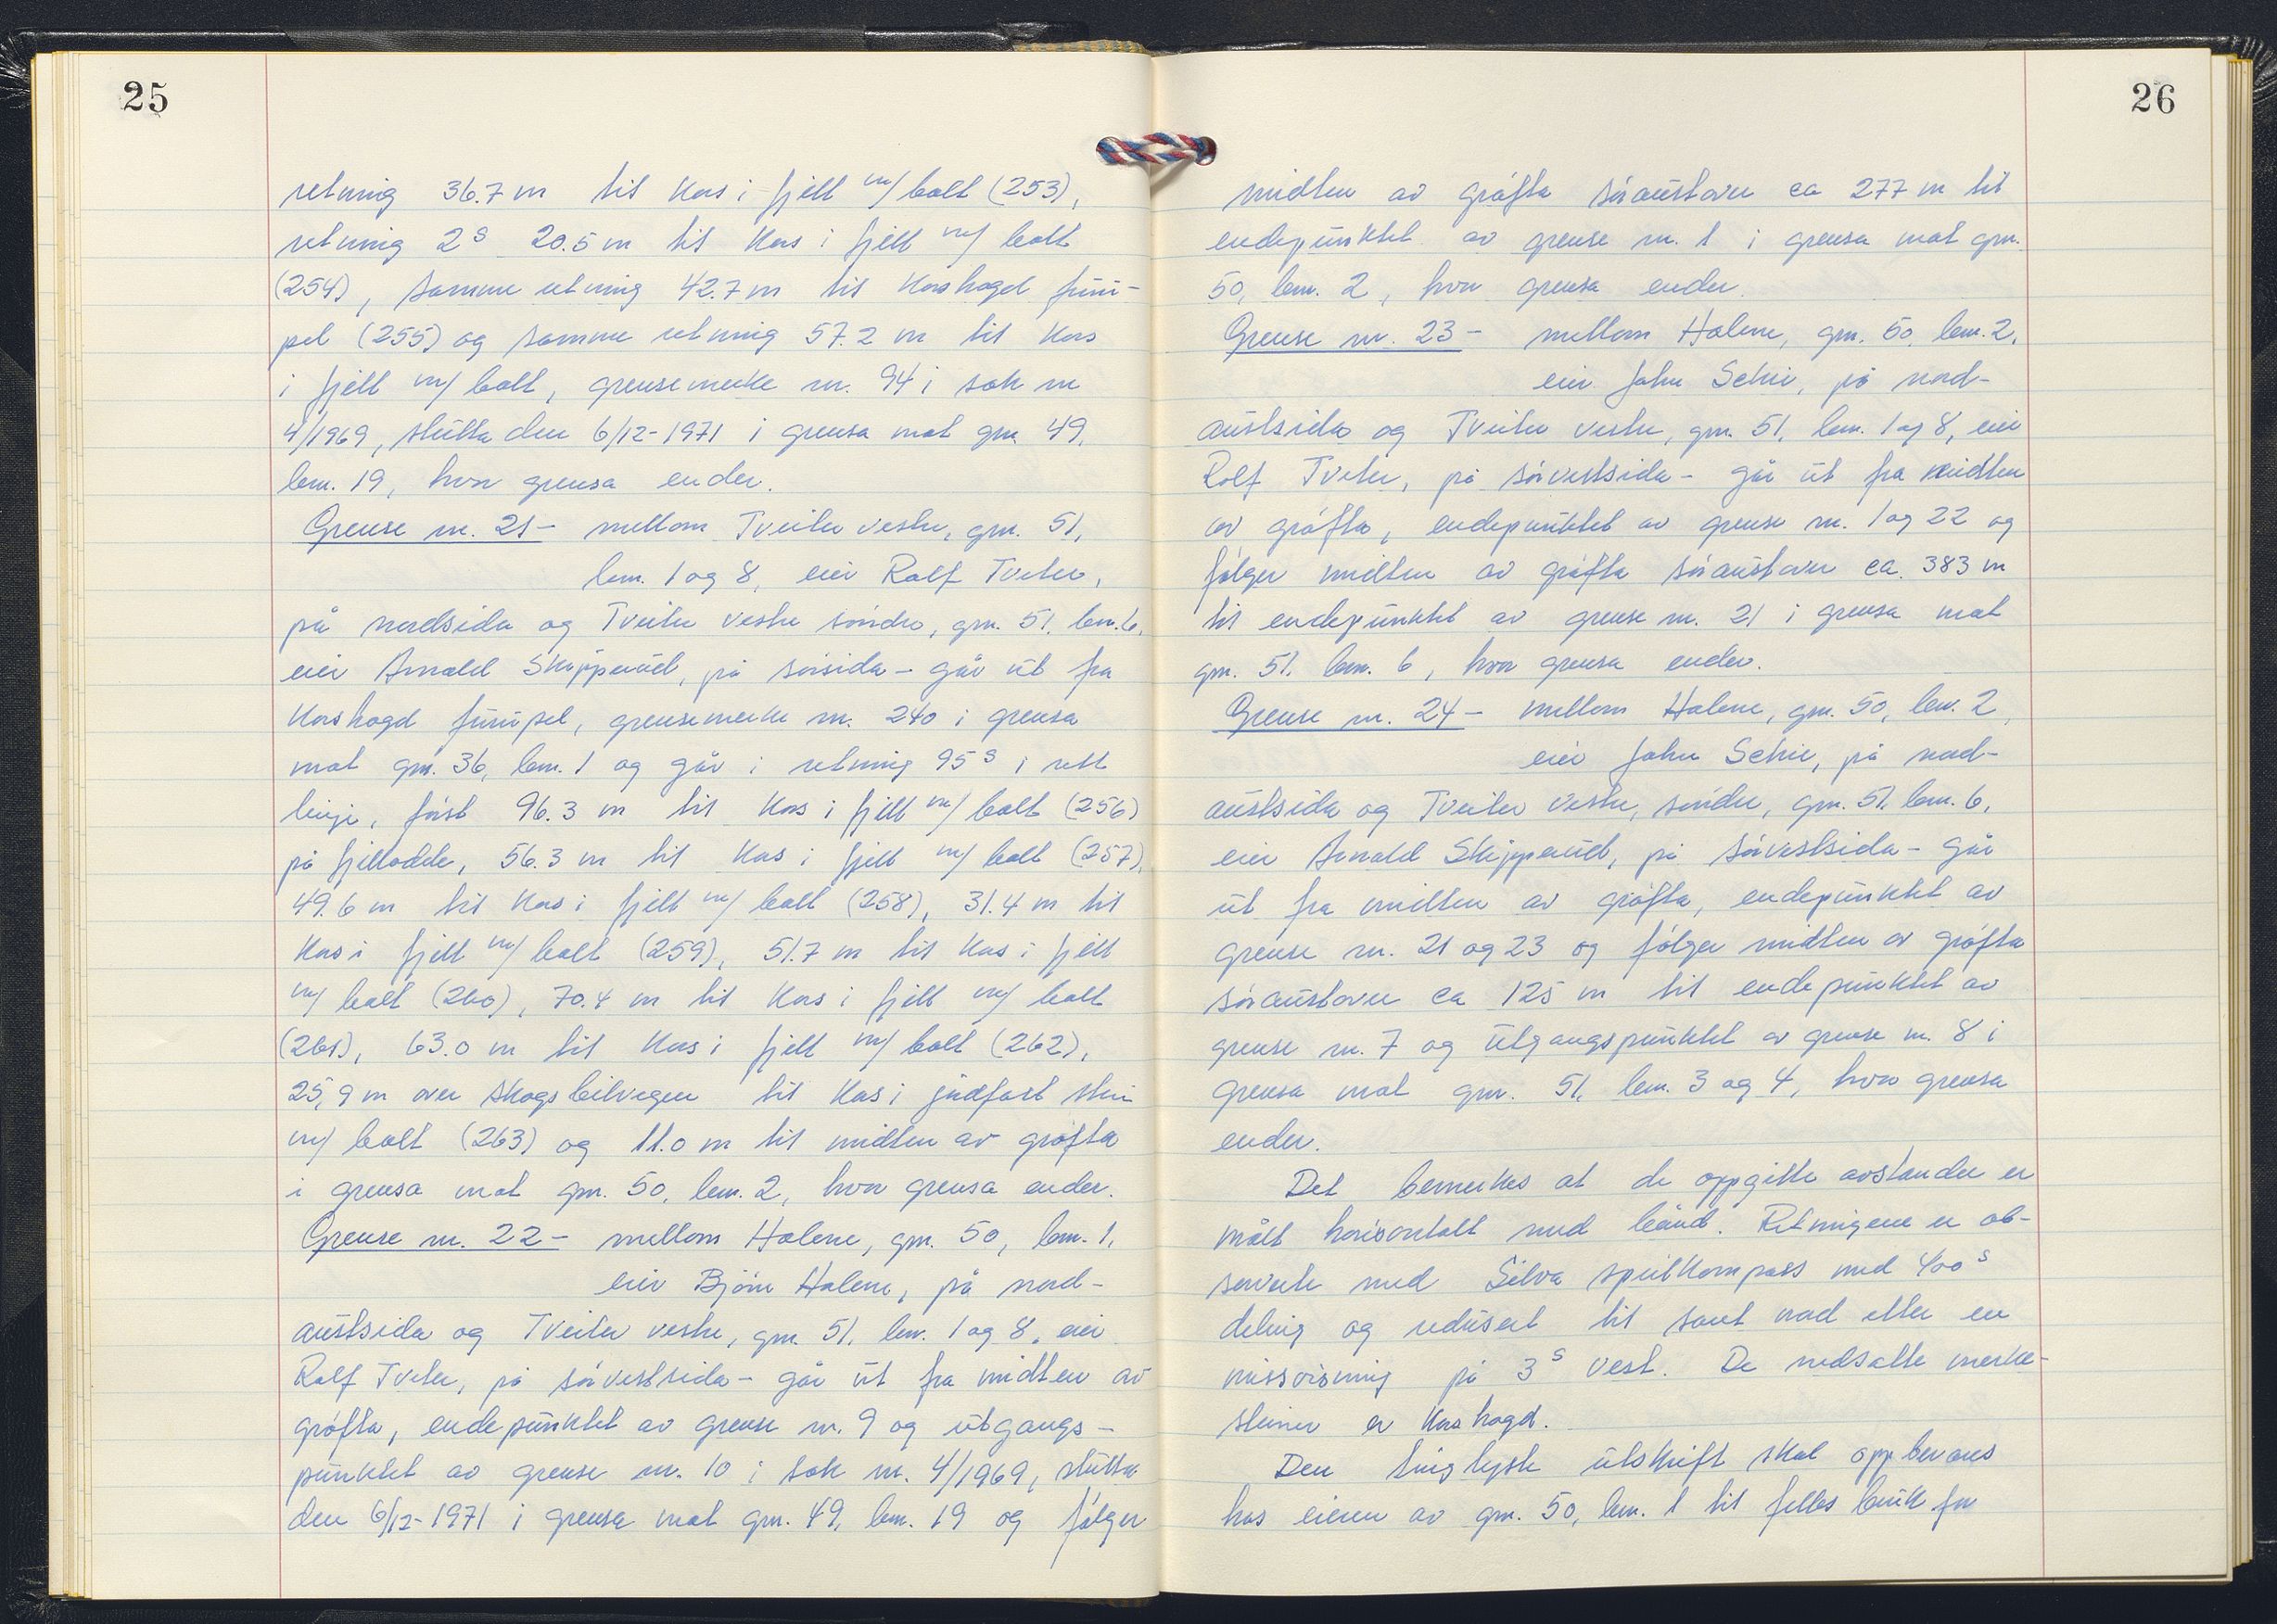 25
retning 36.7 m til kors i fjell m/ bolt (253),
retning 2g 20.5 m til kors i fjell m/ bolt
(254), samme retning 42.7 m til korshogd furu-
pel (255) og samme retning 57.2 m til kors
i fjell m/ bolt, grensemerke nr. 94 i sak nr
4/1969, slutta den 6/12-1971 i grensa mot gnr. 49,
bnr. 19, hvor grensa ender.
Grense nr. 21 - mellom Tveiter vestre, gnr. 51,
bnr. 1 og 8, eier Rolf Tveter,
på nordsida og Tveiter vestre söndre, gnr. 51, bnr. 6,
eier Arnold Skipperud, på sörsida - går ut fra
korshogd furupel, grensemerke nr. 240 i grensa
mot gnr. 36, bnr. 1 og går i retning 95g i rett
linje, först 96.3 m til kors i fjell m/ bolt (256)
på fjellodde, 56.3 m til kors i fjell m/ bolt (257),
49.6 m til kors i fjell m/ bolt (258), 31.4 m til
kors i fjell m/ bolt (259), 51.7 m til kors i fjell
m/ bolt (260), 70.4 m til kors i fjell m/ bolt
(261), 63.0 m til kors i fjell m/ bolt (262),
25,9 m over skogsbilvegen til kors i jordfast stein
m/ bolt (263) og 11.0 m til midten av gröfta
i grensa mot gnr. 50, bnr. 2, hvor grensa ender.
Grense nr. 22 - mellom Holene, gnr. 50, bnr. 1,
eier Björn Holene, på nord-
austsida og Tveiter vestre, gnr. 51, bnr. 1 og 8, eier
Rolf Tveter, på sörvestsida - går ut fra midten av
gröfta, endepunktet av grense nr. 9 og utgangs-
punktet av grense nr. 10 i sak nr. 4/1969, slutta
den 6/12-1971 i grensa mot gnr. 49, bnr. 19 og fölger
26
midten av gröfta söraustover ca 277 m til
endepunktet av grense nr. 1 i grensa mot gnr.
50, bnr. 2, hvor grensa ender.
Grense nr. 23 - mellom Holene, gnr. 50, bnr. 2,
eier John Schie, på nord-
austsida og Tveiter vestre, gnr. 51, bnr. 1 og 8, eier
Rolf Tveter, på sörvestsida - går ut fra midten
av gröfta, endepunktet av grense nr. 1 og 22 og
fölger midten av gröfta söraustover ca. 383 m
til endepunktet av grense nr. 21 i grensa mot
gnr. 51, bnr. 6, hvor grensa ender.
Grense nr. 24 - mellom Holene, gnr. 50, bnr. 2,
eier John Schie, på nord-
austsida og Tveiter vestre, söndre, gnr. 51, bnr. 6,
eier Arnold Skipperud, på sörvestsida - går
ut fra midten av gröfta, endepunktet av
grense nr. 21 og 23 og fölger midten av gröfta
söraustover ca 125 m til endepunktet av
grense nr. 7 og utgangspunktet av grense nr. 8 i
grensa mot gnr. 51, bnr. 3 og 4, hvor grensa
ender.
Det bemerkes at de oppgitte avstander er
målt horisontalt med band. Retningene er ob-
servert med Silva speilkompass med 400g
deling og redusert til sant nord etter en
missvisning på 3g vest. De nedsatte merke-
steiner er korshogd.
Den tinglyste utskrift skal oppbevares
hos eieren av gnr. 50, bnr. 1 til felles bruk for